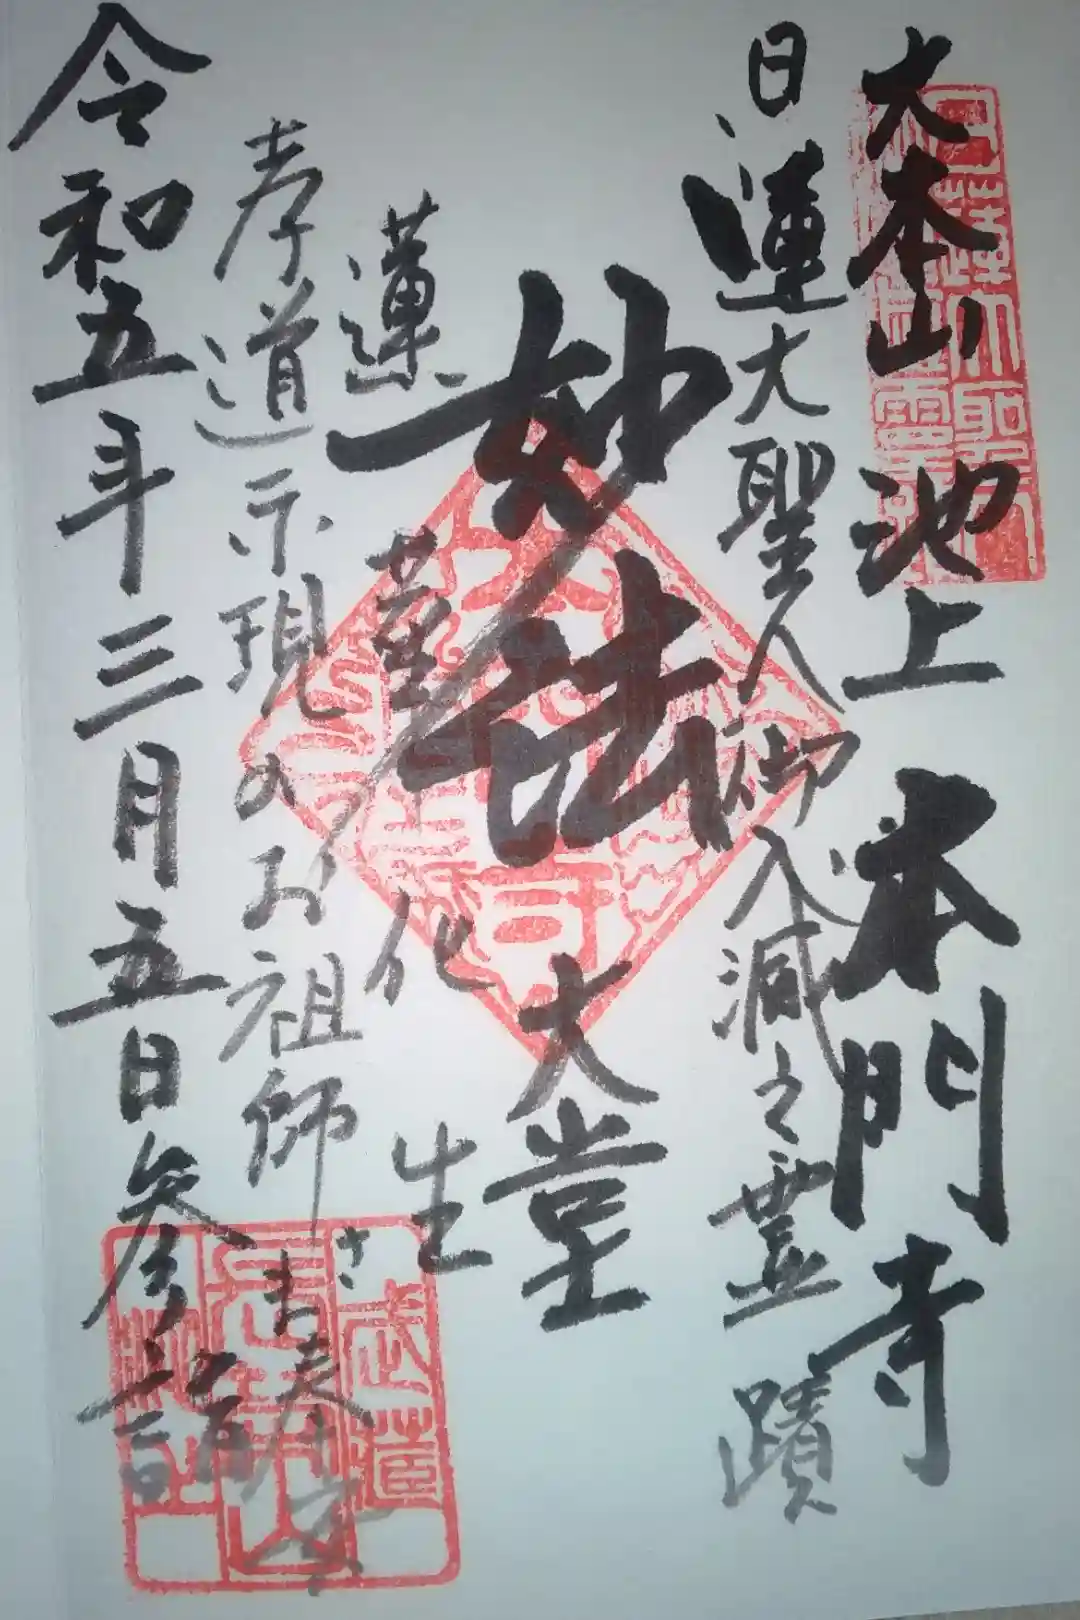 大本山 池上 本門寺
日蓮大聖人御入滅之霊蹟
妙法
大堂
蓮華化生
孝道示現のお祖師さま奉安
令和五年三月五日参詣